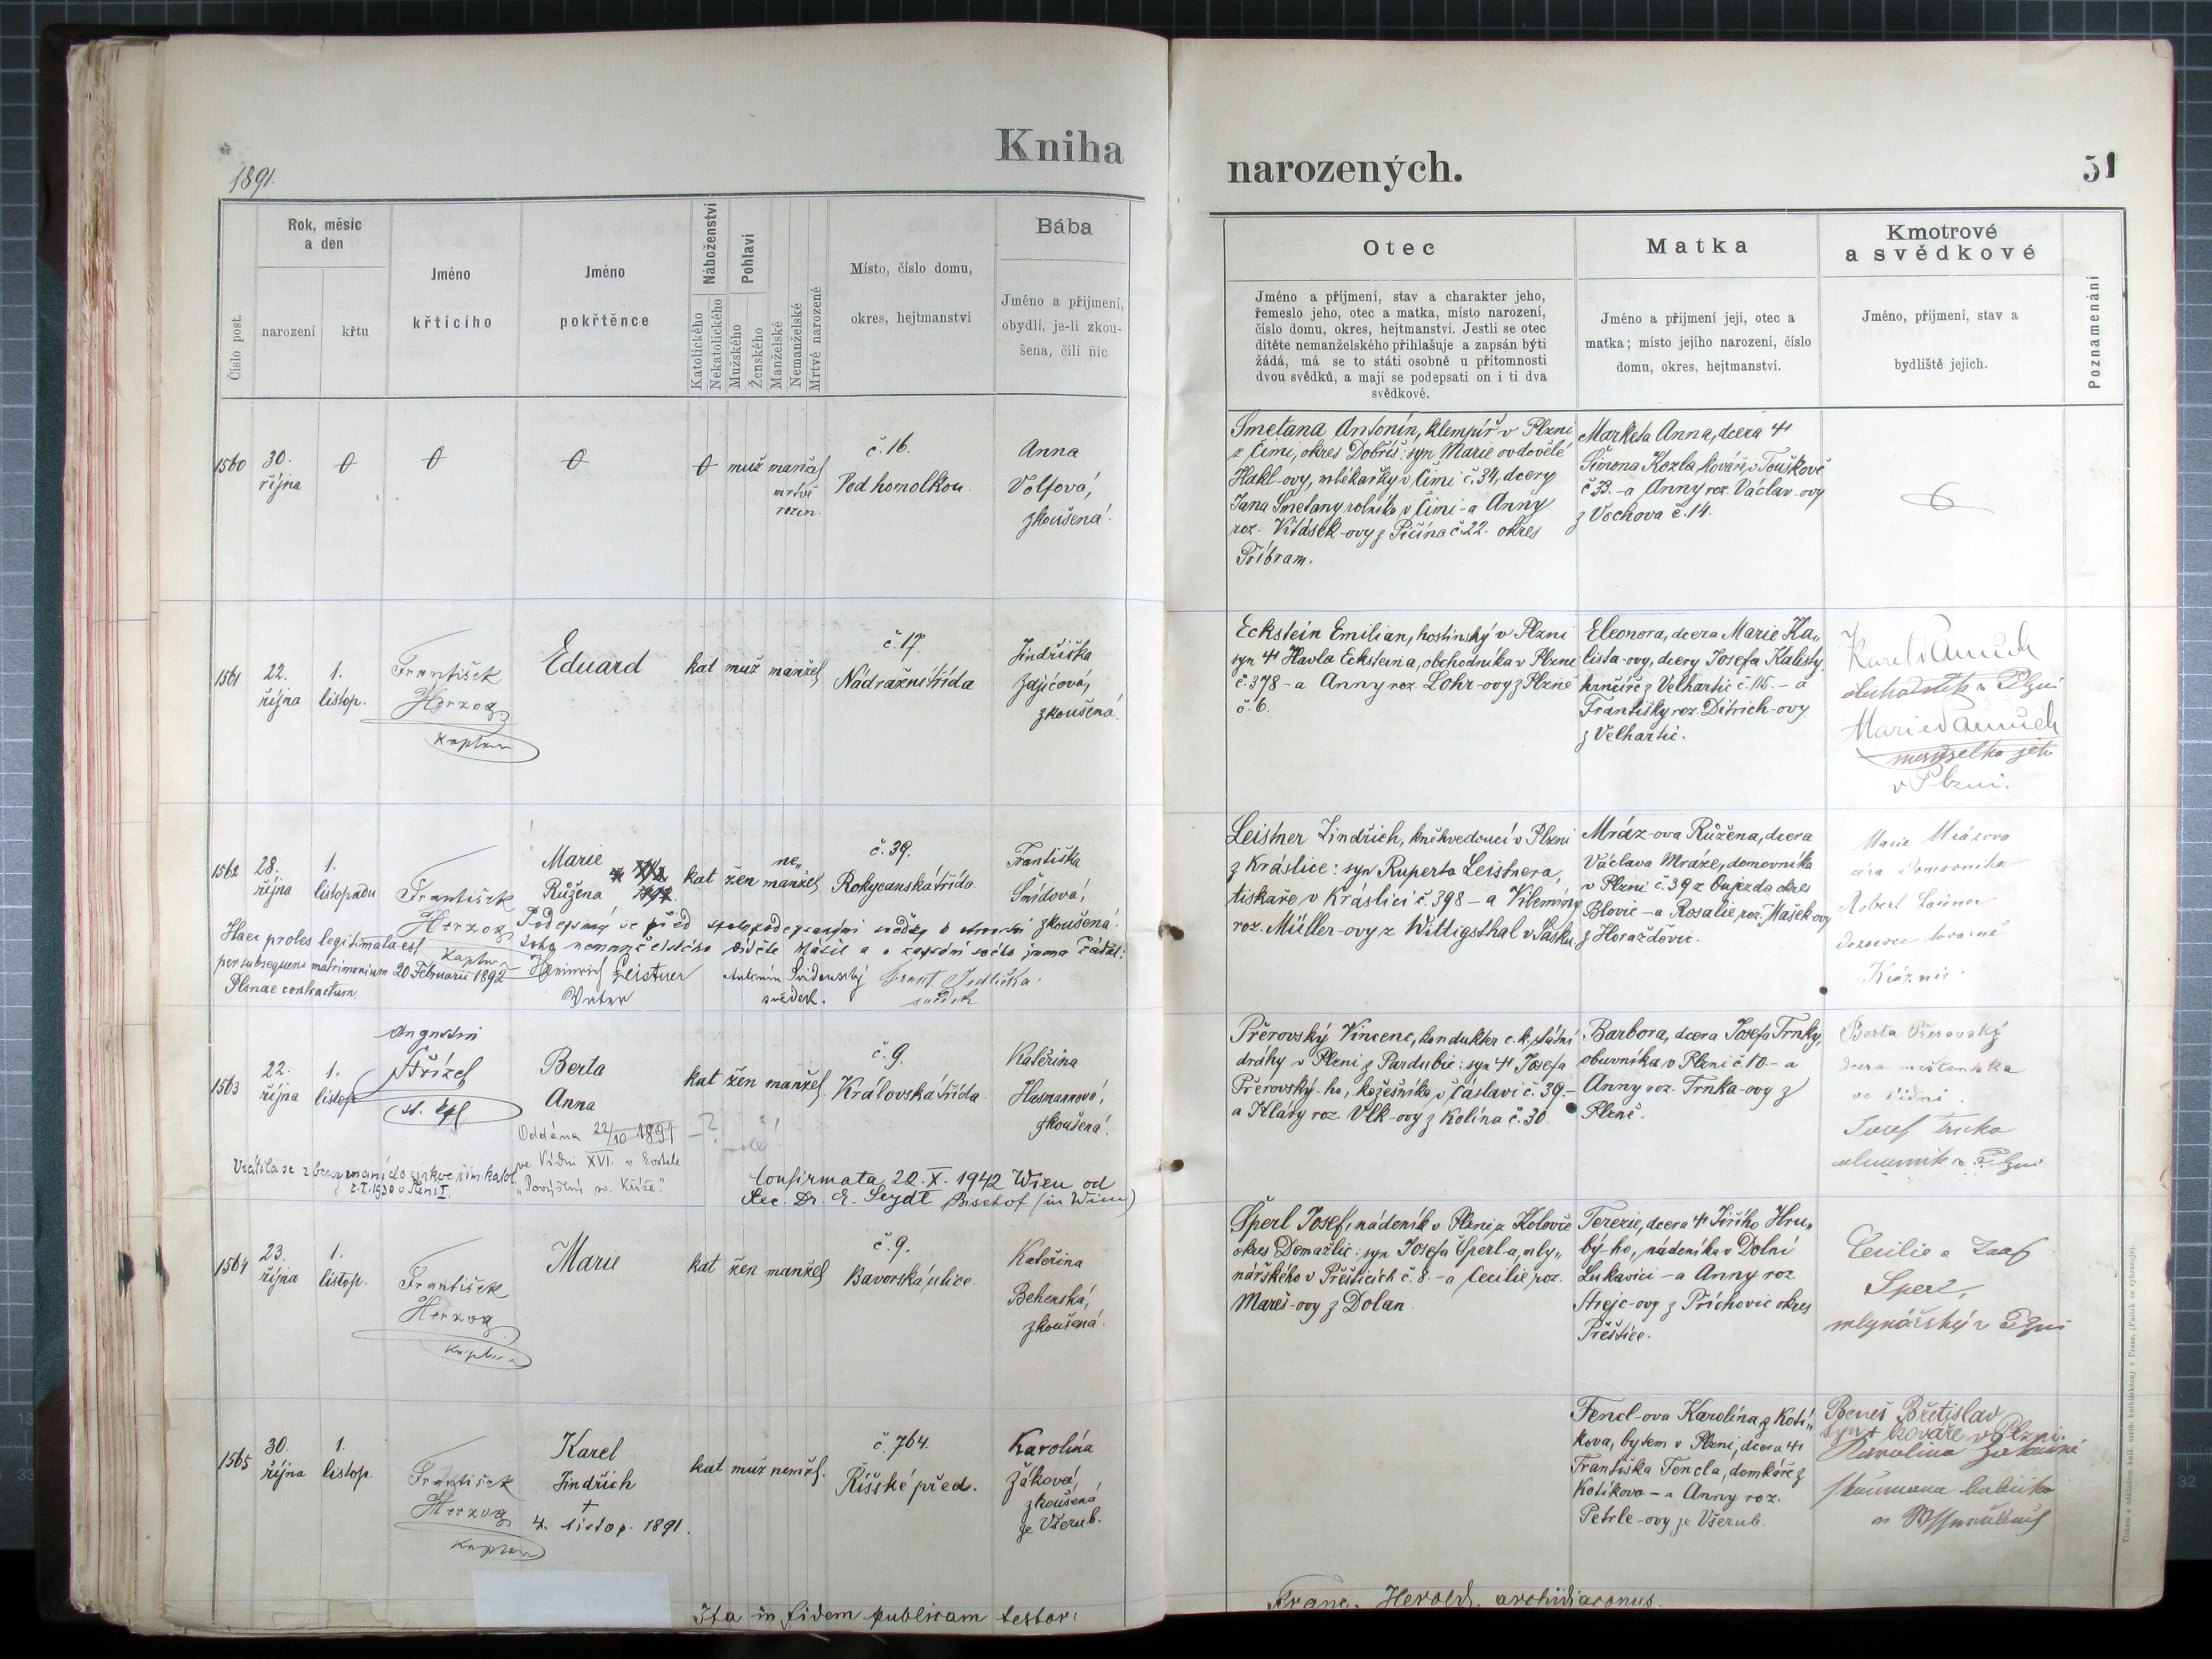 Kniha
1891.
Rok, měsíc
a den
Číslo post.
narození
křtu
Jméno
křtícího
Jméno
pokřtěnce
Náboženství
Katolického
Nekatolického
Pohlaví
Mužského
Ženského
Manželské
Nemanželské
Mrtvě narozené
Místo, číslo domu,
okres, hejtmanství
Bába
Jméno a příjmení,
obydlí, je-li zkou-
šena, čili nic
1560
30.
října
muž manžel
mrtvě
rozen.
č. 16.
Pod homolkou.
Anna
Volfová,
zkoušená.
1561
22.
října
1.
listop.
František
Herzog
Kaplan
Eduard
kat muž manžel
č. 17.
Nádražní třída
Jindřiška
Zajícová,
zkoušená.
1562
28.
října
1.
listopadu
František
Herzog
Kaplan
Marie
Růžena
kat žen manžel
ne„
č. 39.
Rokycanská třída
Františka
Šmídová,
zkoušená.
Haec proles legitimata est
per subsequens matrimonium 20 Februarii 1892
Plenae contractum.
Heinrich Leistner
Vater
svědek.
Jedlička
svědek
1563
22.
října
1.
listop.
Augustin
Střízel
st. kpl
Berta
Anna
kat žen manžel
č. 9.
Královská třída
Kateřina
Hasmannová,
zkoušená.
Oddána 22/10 1891 – ?
ve Vídni XVI. v kostele
„Povýšení sv. Kříže."
Confirmata 22. X. 1942 Wien od
Exc. Dr. E. Seydl Bischof (in Wien)
1564
23.
října
1.
listop.
František
Herzog
Kaplan
Marie
kat žen manžel
č. 9.
Bavorská ulice.
Kateřina
Behenská,
zkoušená.
1565
30.
října
1.
listop.
František
Herzog
Kaplan
Karel
Jindřich
†
4. listop. 1891.
kat muž nemžel.
č. 764.
Říšské před.
Karolína
Žáková,
zkoušená
ze Všerub.
Ita in fidem publicam testor:
narozených.
51
Otec
Jméno a příjmení, stav a charakter jeho,
řemeslo jeho, otec a matka, místo narození,
číslo domu, okres, hejtmanství. Jestli se otec
dítěte nemanželského přihlašuje a zapsán býti
žádá, má se to státi osobně u přítomnosti
dvou svědků, a mají se podepsati on i ti dva
svědkové.
Matka
Jméno a příjmení její, otec a
matka; místo jejího narození, číslo
domu, okres, hejtmanství.
Kmotrové
a svědkové
Jméno, příjmení, stav a
bydliště jejich.
Poznamenání
Smetana Antonín, klempíř v Plzni
z Čími, okres Dobříš: syn Marie ovdovělé
Hakl-ovy, mlékařky v Čími č. 34, dcery
Jana Smetany rolníka v Čími - a Anny
roz. Vitásek-ovy z Pičína č. 22. okres
Příbram.
Marketa Anna, dcera †
Šimona Kozla, kováře v Touškově
č. 33. - a Anny roz. Václav-ovy
z Vochova č. 14.
Eckstein Emilian, hostinský v Plzni
syn † Havla Ecksteina, obchodníka v Plzni
č. 378 - a Anny roz. Lohr-ovy z Plzně
č. 6.
Eleonora, dcera Marie Ka„
lista-ovy, dcery Josefa Kalisty,
krnčíře z Velhartic č. 115. - a
Františky roz. Ditrich-ovy
z Velhartic.
Karel
obchodník v Plzni
Marie
manželka jeho
v Plzni.
Leistner Jindřich, knihvedoucí v Plzni
z Kraslic: syn Ruperta Leistnera,
tiskaře v Kraslici č. 398 - a Vilemíny
roz. Müller-ovy z Wittigsthal v Sasku
Mráz-ova Růžena, dcera
Václava Mráze, domovníka
v Plzni č. 39 z Oujezda okres
Blovic - a Rosalie roz. Mašek-ovy
z Horažďovic.
Marie Mrázova
dcera domovníka
Robert
Přerovský Vincenc, kondukter c. k. státní
dráhy v Plzni z Pardubic: syn † Josefa
Přerovský-ho, kožešníka v Čáslavi č. 39. -
a Klary roz. Vlk-ovy z Kolína č. 30.
Barbora, dcera Josefa Trnky,
obuvníka v Plzni č. 10. - a
Anny roz. Trnka-ovy z
Plzně.
Berta Přerovský
dcera
ve Vídni.
Josef Trnka
obuvník v Plzni
Šperl Josef, nádeník v Plzni z Koloveč
okres Domažlic: syn Josefa Šperl-a, mly„
nářského v Přešticích č. 8. - a Cecilie roz.
Mareš-ovy z Dolan.
Terezie, dcera † Jiřího Hru„
bý-ho, nádeníka v Dolní
Lukavici - a Anny roz.
Strejc-ovy z Příchovic okres
Přeštice.
Cecilie a Josef
Sperl,
mlynářský v Plzni
Fencl-ova Karolína z Kotí„
kova, bytem v Plzni, dcera †
Františka Fencla, domkáře z
Kotíkova - a Anny roz.
Petrle-ovy ze Všerub.
Beneš Břetislav
syn † kováře v Plzni.
Karolina
Franc. Herold, archidiaconus.